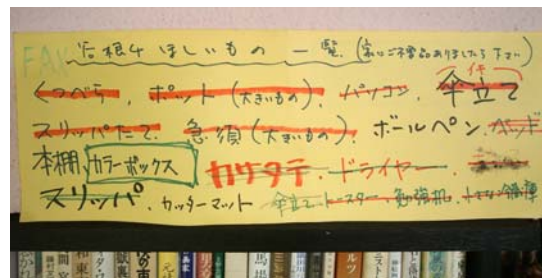 ほしいもの 一覧 (家にご不要品ありましたら下さい)
くつべら、ポット(大きいもの)、パソコン、傘立て
スリッパたて、急須(大きいもの)、ボールペン、ベッド
本棚、カラーボックス カサタテ、ドライヤー、
スリッパ、カッターマット 傘立て、トースター、勉強机、小さな冷蔵庫